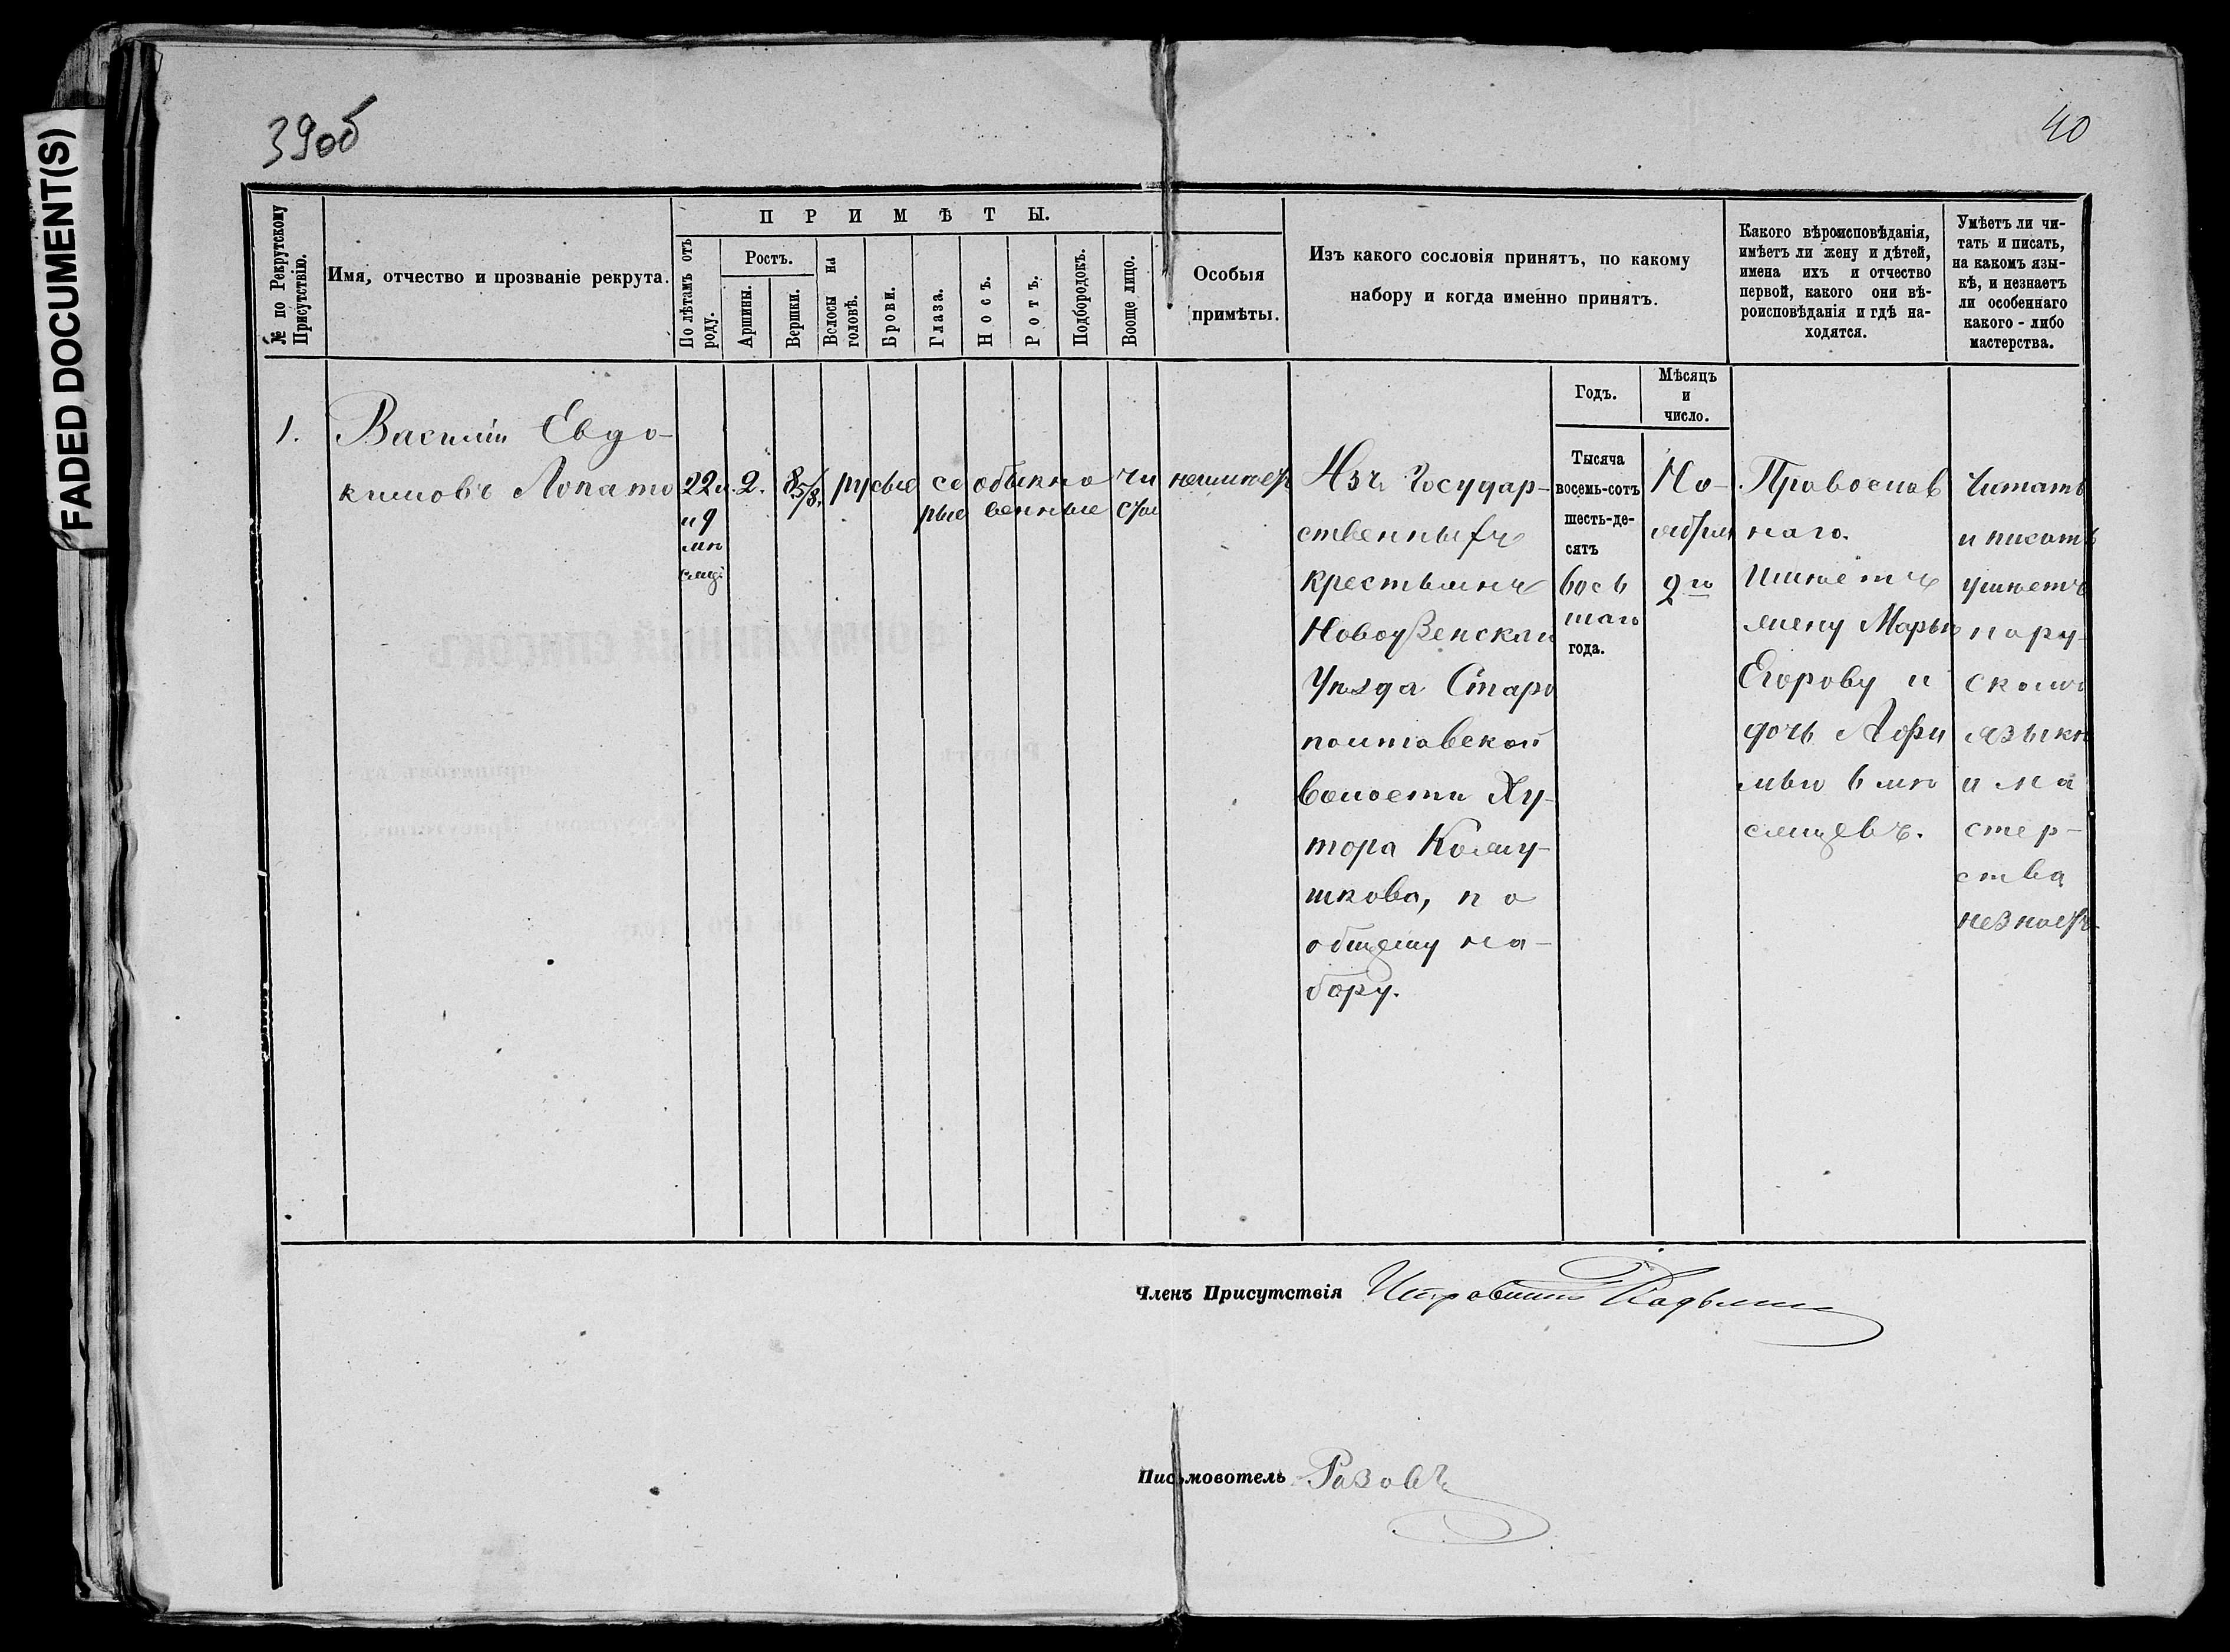 FADED DOCUMENT(S)
39об
40
№ по Рекрутскому Присутствію.
Имя, отчество и прозваніе рекрута.
ПРИМѢТЫ.
По лѣтамъ отъ роду.
Ростъ.
Аршины.
Вершки.
Волосы на головѣ.
Брови.
Глаза.
Носъ.
Ротъ.
Подбородокъ.
Вооще лицо.
Особыя
примѣты.
Изъ какого сословія принятъ, по какому
набору и когда именно принятъ.
Какого вѣроисповѣданія,
имѣетъ ли жену и дѣтей,
имена ихъ и отчество
первой, какого они вѣ-
роисповѣданія и гдѣ на-
ходятся.
Умѣетъ ли чи-
тать и писать,
на какомъ язы-
кѣ, и незнаетъ
ли особеннаго
какого - либо
мастерства.
Годъ.
Мѣсяцъ
и
число.
1.
Василій Евдо-
кимовъ Лопато
22 и
и 9
мѣ
сяц
2.
8 5/8.
русые
се
рые
обыкно
венные
чи
стое
неимѣет
Изъ Государ-
ственныхъ
крестьянъ
Новоузенскаго
Уѣзда Старо
полтавской
волости Ху-
тора
по
общему на-
бору.
Тысяча
восемь-сотъ
шесть-де-
сятъ
вось
маго
года.
Но-
ября
9 го
Православ
наго.
Имѣетъ
жену Марью
Егорову и
дочь
мѣ
сяцевъ.
Читать
и писать
умѣетъ
пору-
ском
языкѣ
и ма
стер-
ства
незнаетъ
Членъ Присутствія Исправникъ
Письмовотель Разовъ